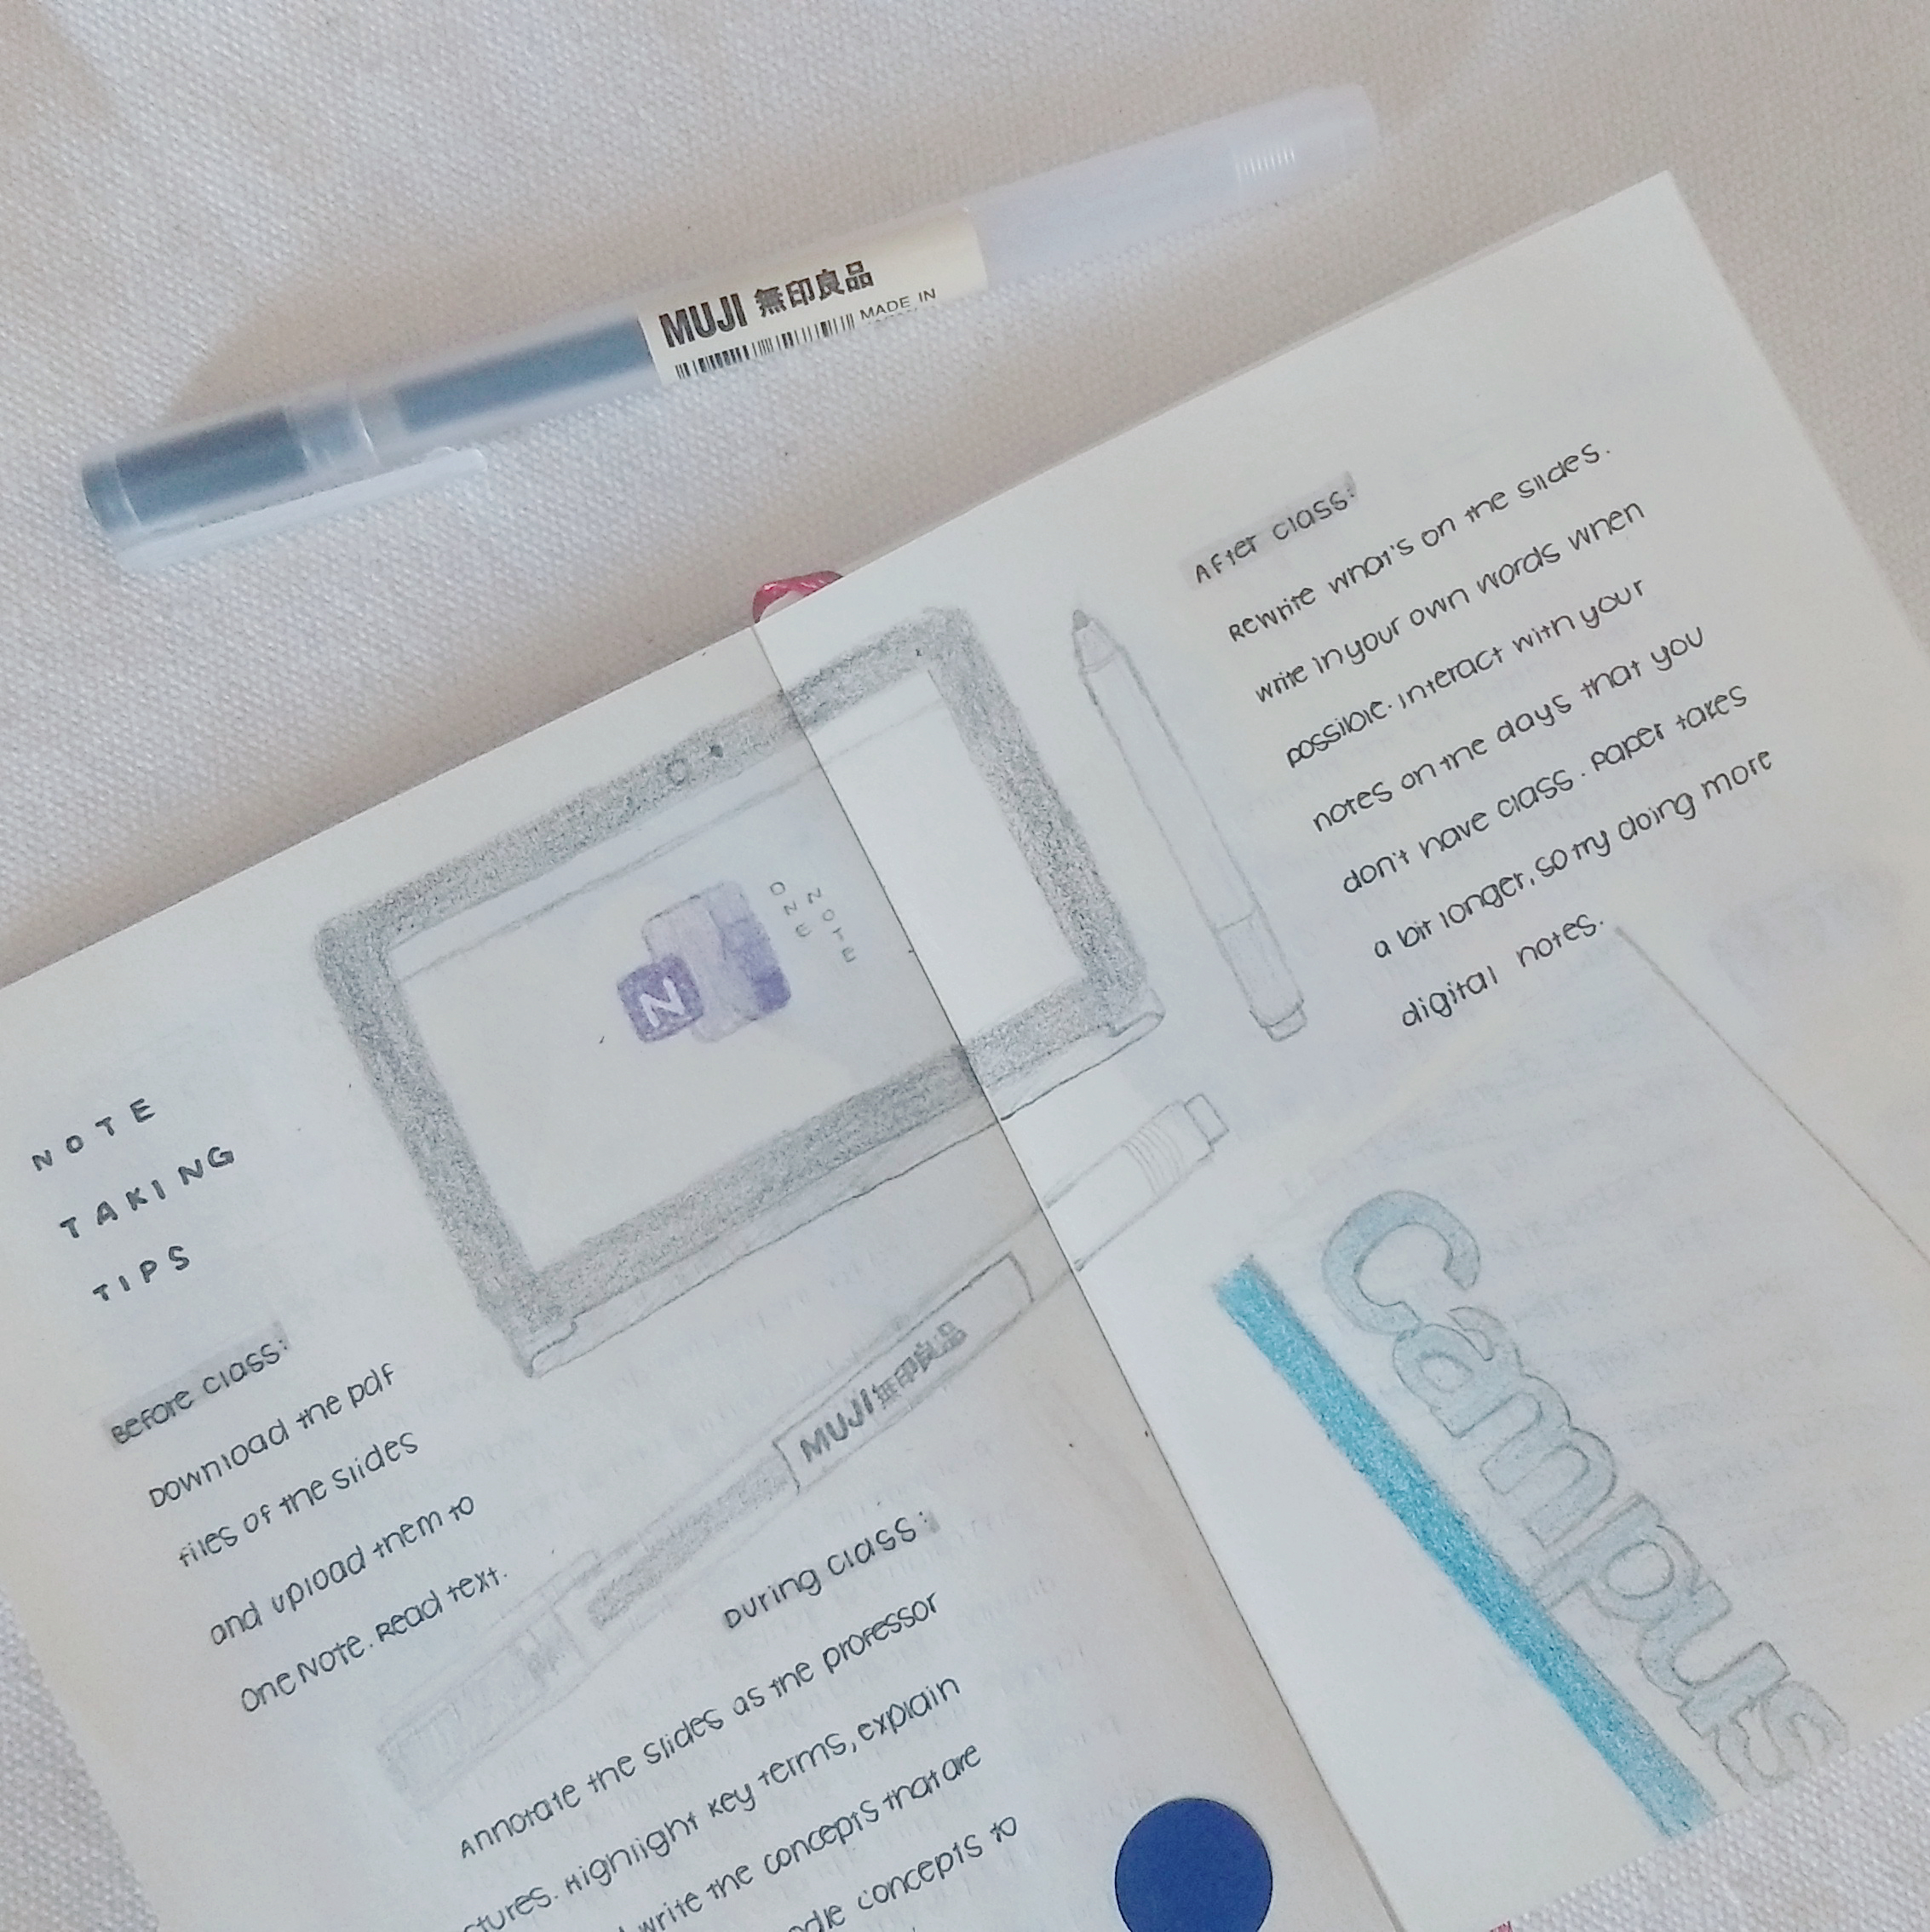 MUJI 無印良品
MADE IN
NOTE
TAKING
TIPS
Before class:
Download the pdf
files of the slides
and upload them to
OneNOTE. Read text.
N
ONE
NOTE
MUJI 無印良品
During class:
Annotate the slides as the professor
Highlight key terms, explain
write the concepts that are
concepts to
After class:
Rewrite what's on the slides.
write in your own words when
possible. Interact with your
notes on the days that you
don't have class. Paper takes
a bit longer, so try doing more
digital notes.
Campus